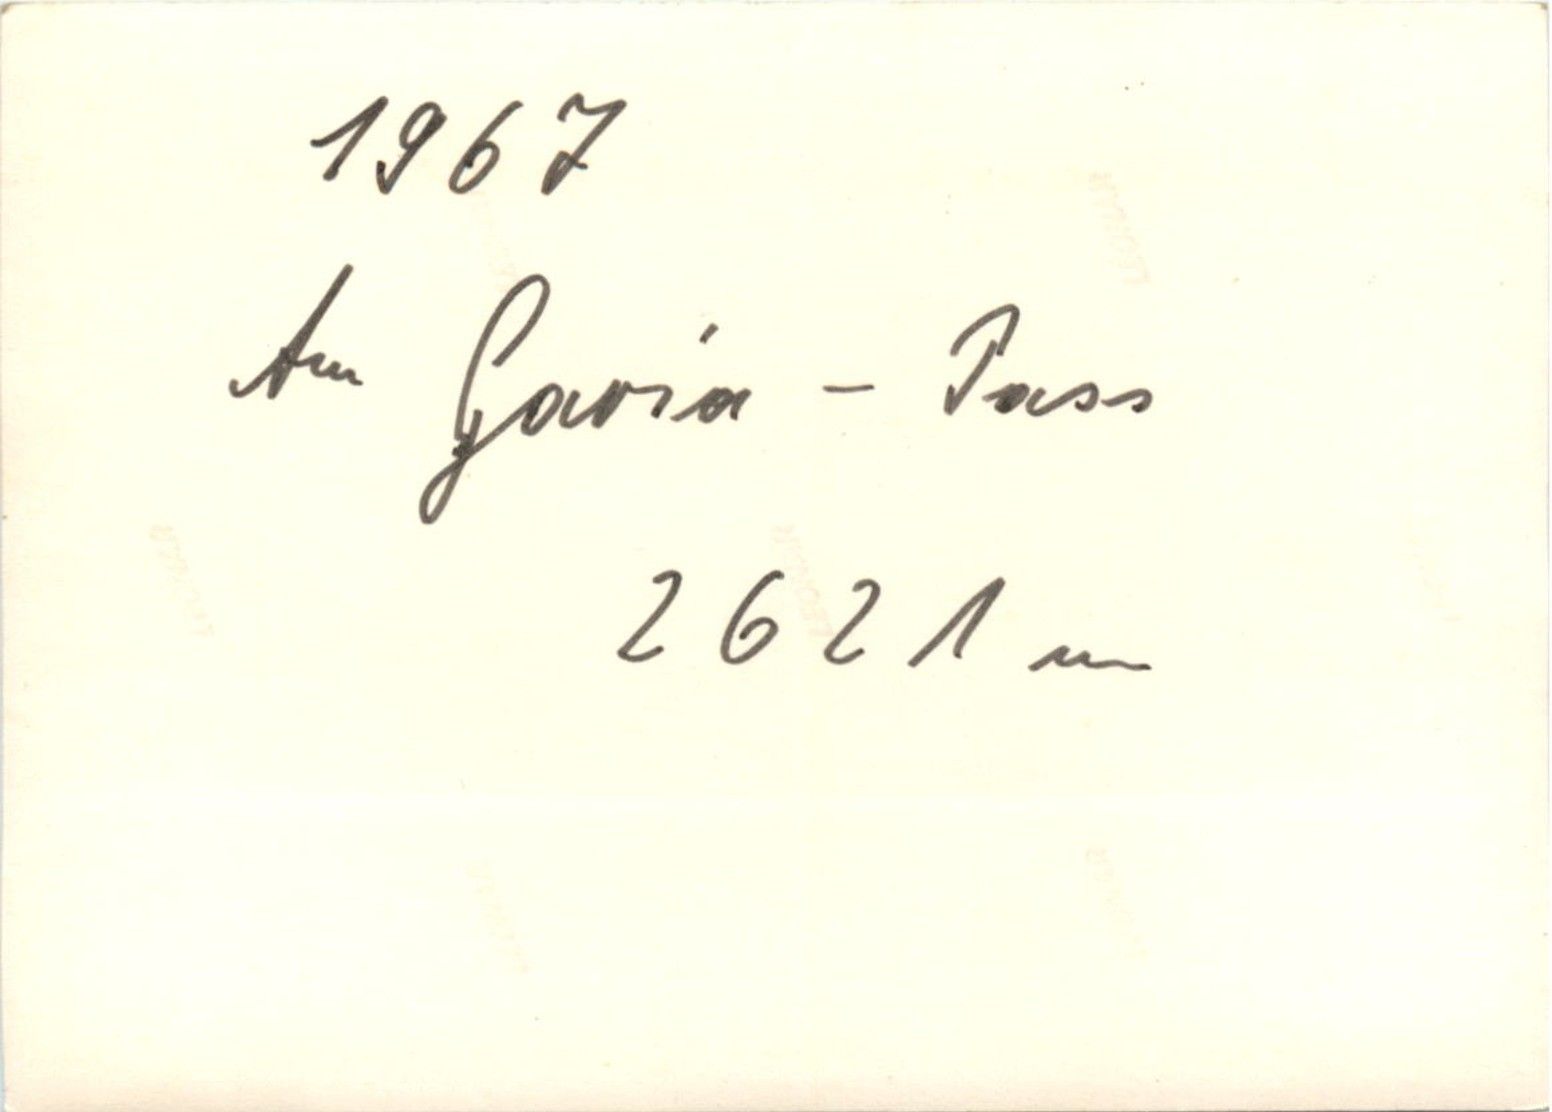 1967
Am Gavia - Pass
2621 m